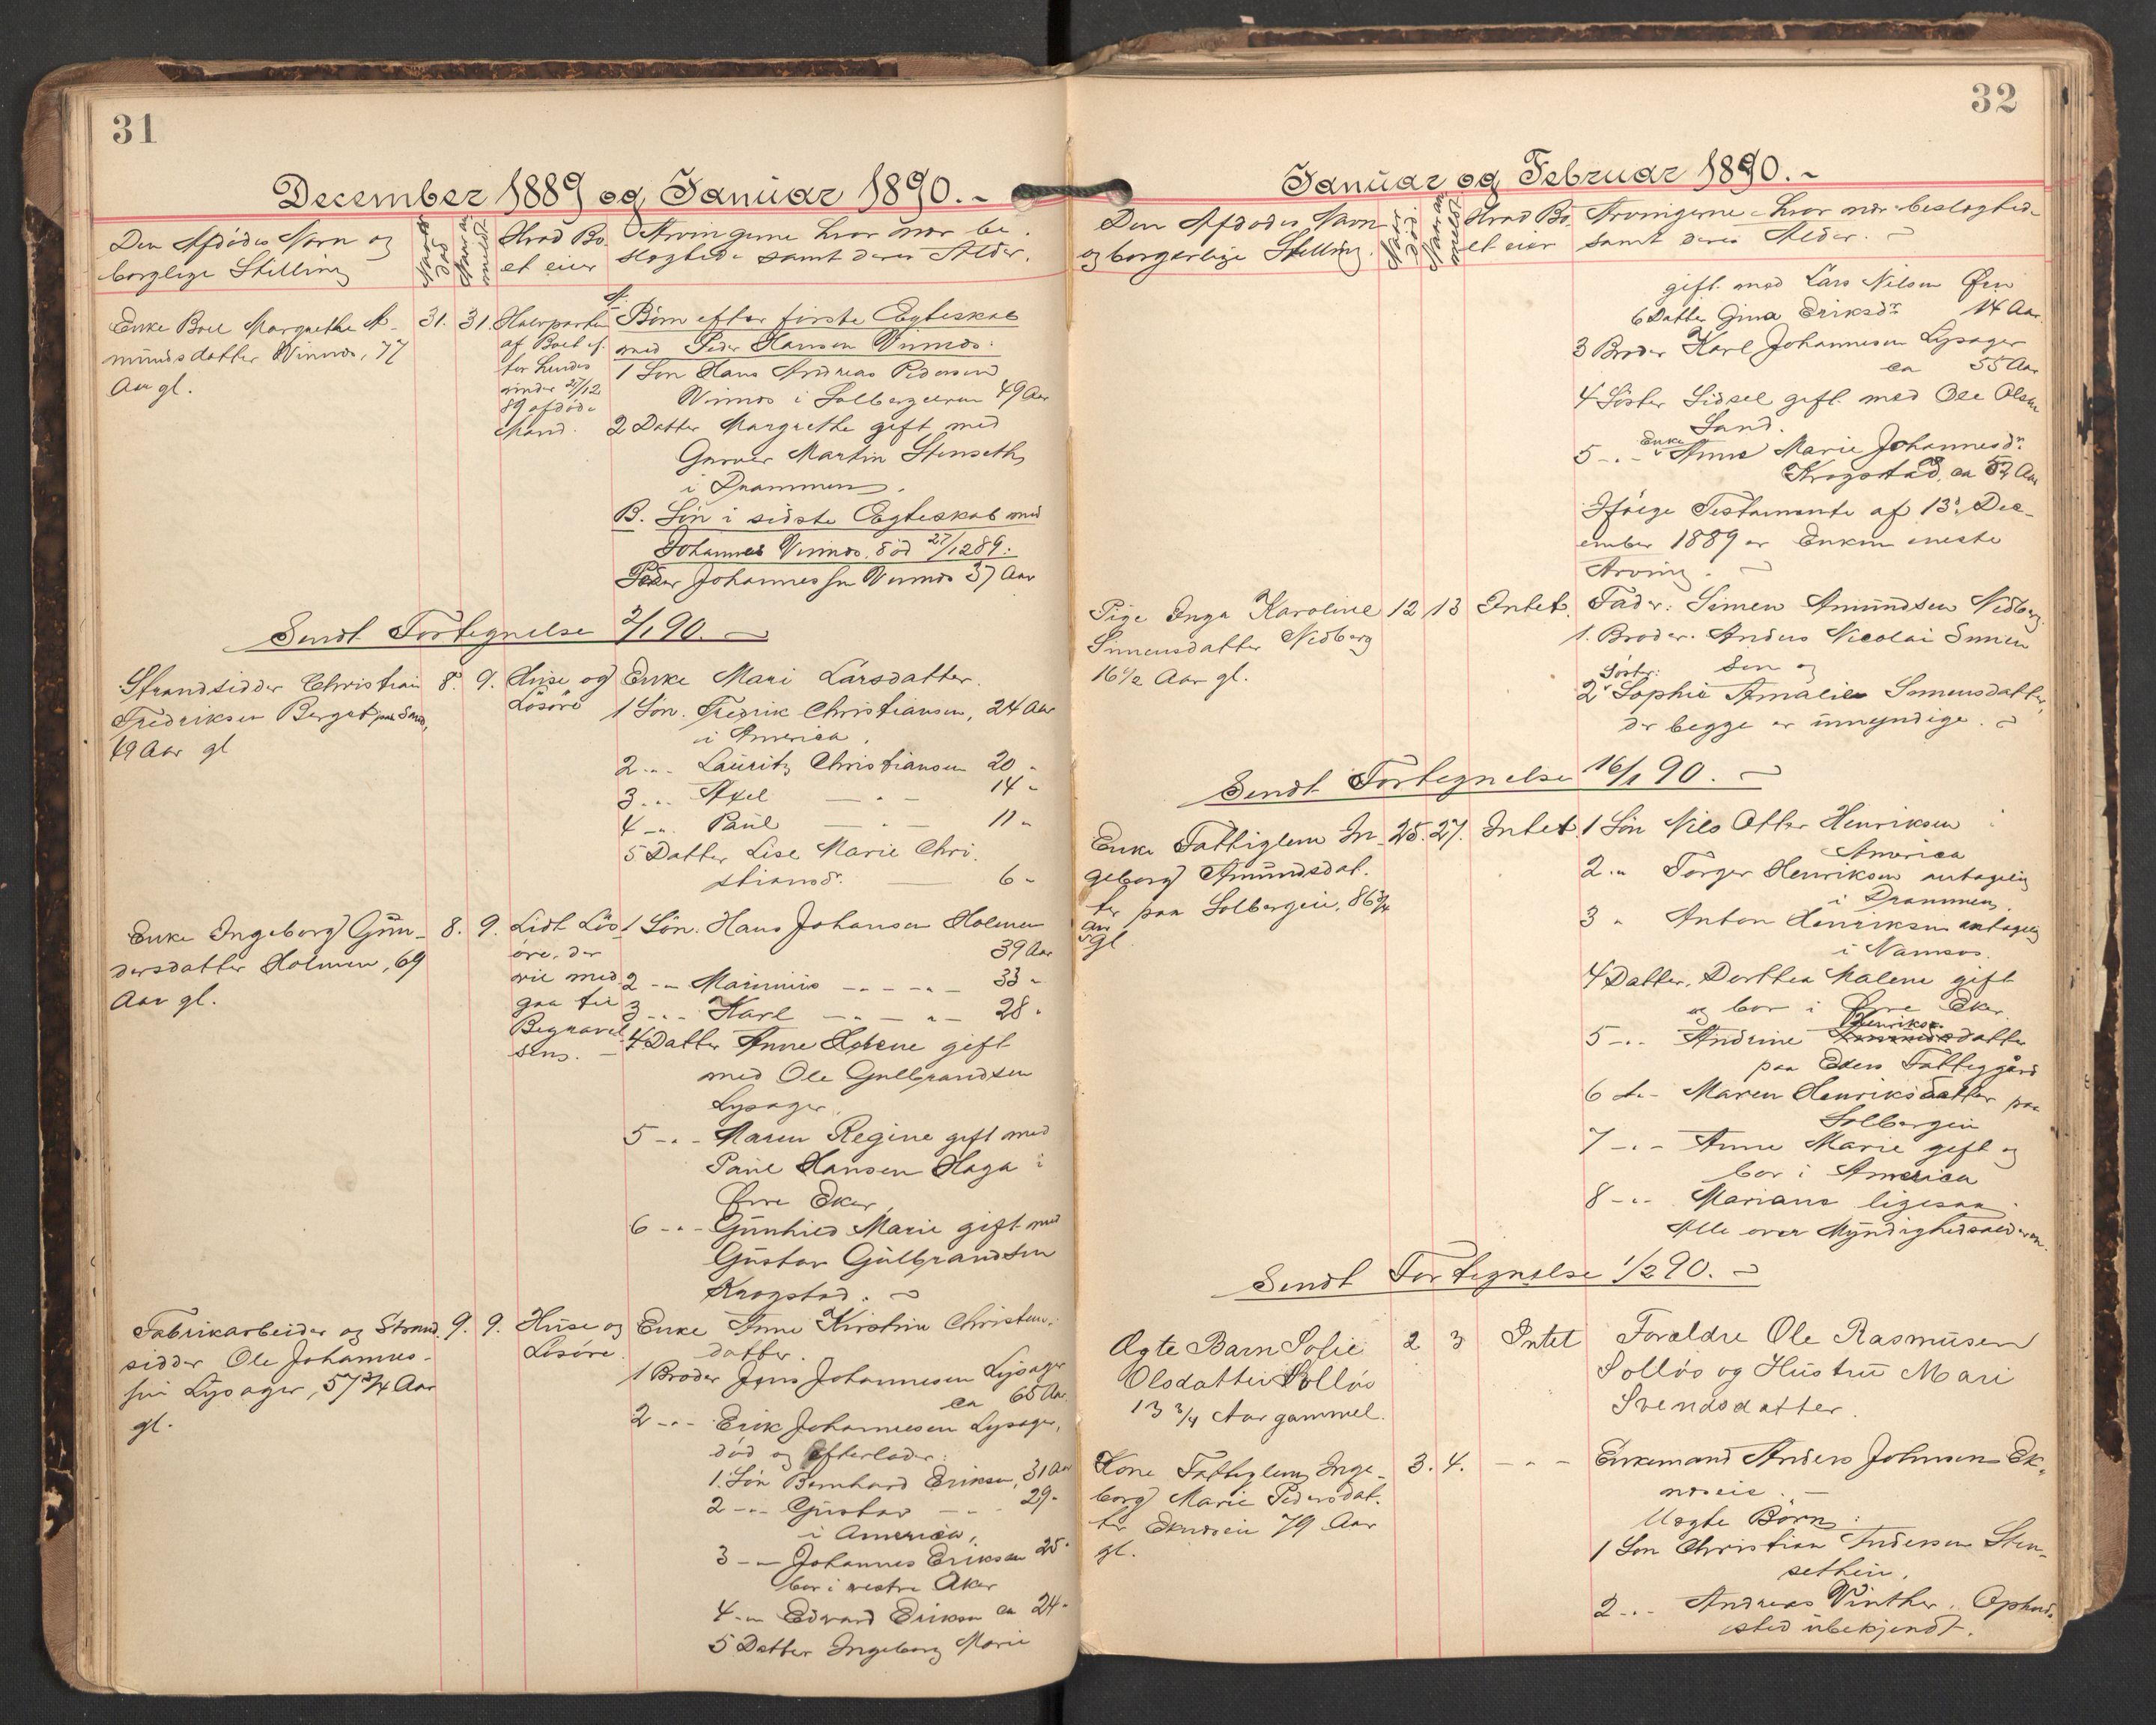 31
December 1889 og Januar 1890.-
Den Afdödes Navn og
borglige Stilling
Naar
död
Naar an-
meldt
Hvad Bo-
et eier
Arvingerne hvor nær be-
slægtede samt deres Alder.
Enke Boel Margrethe A-
mundsdatter Vinnæs, 77
Aar gl.
31.
31.
Halvparten
af Boet ef-
ter hendes
under 27/12
89 afdöde
Mand.
A.
Börn efter förste Egteskab
med Peder Hansen Vinnæs:
1 Sön Hans Andreas Pedersen
Vinnæs i Solbergelven 49 Aar
2 Datter Margrethe gift med
Garver Martin Stenseth,
i Drammen.
B. Sön i sidste Egteskab med
Johannes Vinnæs, död 27/12 89:
Peder Johannessen Vinnæs 37 Aar
Sendt Fortegnelse 2/1 90.
Strandsidder Christian
Fredriksen Berget paa Sand,
49 Aar gl
8.
9.
Huse og
Lösöre
Enke Mari Larsdatter.
1 Sön. Fredrik Christiansen, 24 Aar
i America.
2 -"- Lauritz Christiansen 20 -
3 -"- Axel — " — 14 -
4 -"- Paul — " — 11 -
5 Datter Lise Marie Chri-
stiansdr. — 6 -
Enke Ingeborg Gun-
dersdatter Holmen, 69
Aar gl.
8.
9.
Lidt Lös-
öre, der
vil med-
gaa til
Begravel-
sen. -
1 Sön. Hans Johansen Holmen
39 Aar
2 -"- Marinius -"- -"- 33 -
3 -"- Karl -"- -"- 28 -
4 Datter Anne Helene gift
med Ole Gulbrandsen
Lysager.
5 -"- Maren Regine gift med
Paul Hansen Haga i
Övre Eker.
6 -"- Gunhild Marie gift med
Gustav Gulbrandsen
Krogstad.
Fabrikarbeider og Strand-
sidder Ole Johannes-
sen Lysager, 57 3/4 Aar
gl.
9.
9.
Huse og
Lösöre
Enke Anne Kirstine Christens-
datter.
1 Broder Jens Johannesen Lysager
ca 65 Aar.
2 -"- Erik Johannesen Lysager,
död og efterlader:
1. Sön Bernhard Eriksen, 31 Aar
2 -"- Gustav - - - 29 -
i America,
3 -"- Johannes Eriksen 25 -
bor i vestre Aker
4 -"- Edvard Eriksen ca 24 -
5 Datter Ingeborg Marie
32
Januar og Februar 1890.-
Den Afdödes Navn
og borgerlige Stilling.
Naar
död
Naar an-
meldt
Hvad Bo-
et eier
Arvingerne hvor nær beslægtede
samt deres Alder.
gift med Lars Nilsen Ören
6 Datter Gina Eriksdr. 14 Aar.
3 Broder Karl Johannesen Lysager
ca 55 Aar
4 Söster Sidsel gift med Ole Olsen
Sand.
5 -"- Enke Anne Marie Johannesdr.
Krogstad, ca 52 Aar
Ifölge Testamente af 13de Dec-
ember 1889 er Enken eneste
Arving.
Pige Inga Karoline
Simensdatter Nedberg
16 1/2 Aar gl.
12
13
Intet.
Fader: Simen Amundsen Nedberg.
1. Broder. Anders Nicolai Simen
sen og
Söster:
2 Sophie Amalie Simensdatter,
der begge er umyndige.
Sendt Fortegnelse 16/1 90.
Enke Fattiglem In-
geborg Amundsdat-
ter paa Solbergeie, 86 3/4
Aar
gl.
25.
27.
Intet.
1 Sön Nils Otter Henriksen i
America
2 -"- Torger Henriksen antagelig
i Drammen.
3 " Anton Henriksen antagelig
i Namsos.
4 Datter, Dorthea Malene gift
og bor i Övre Eker.
5 -"- Andrine Henriksdatter
paa Ekers Fattiggård
6 -"- Maren Henriksdatter paa
Solbergeie
7 -"- Anne Marie gift og
bor i America
8 -"- Mariane ligesaa.
Alle over Myndighedsalderen.
Sendt Fortegnelse 1/2 90.
Ægte Barn Sofie
Olsdatter Solløs
13 3/4 Aar gammel.
2
3
Intet
Forældre Ole Rasmusen
Solløs og Hustru Mari
Svendsdatter.
Kone Fattiglem Inge-
borg Marie Pedersdat-
ter Eknæseie 79 Aar
gl.
3.
4.
- " -
Enkemand Anders Johnsen Ek-
næseie. -
Uægte Börn:
1 Sön Christian Andersen Sten-
setheie.
2 -"- Andreas Vinther. Opholds-
sted ubekjendt.